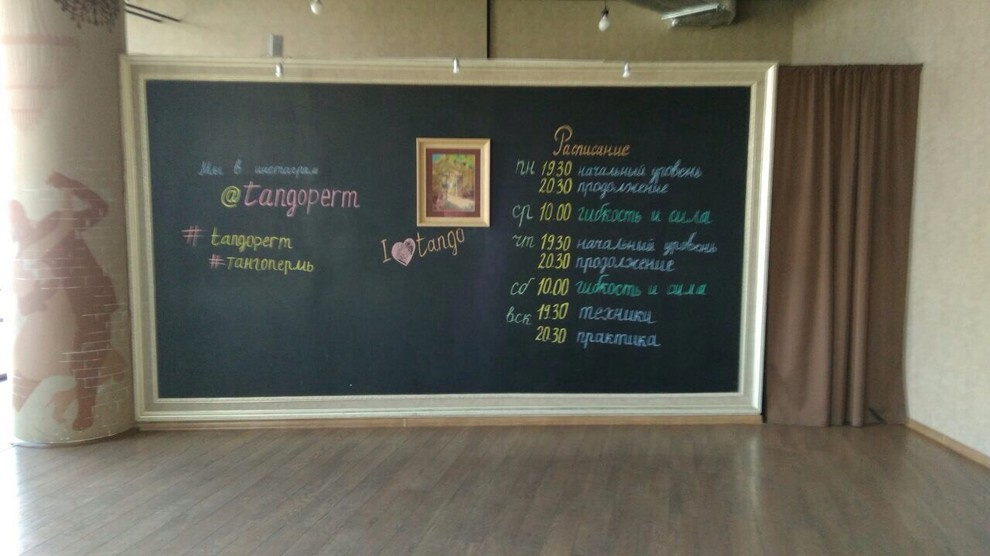 Мы в инстаграм
@tangoperm
# tangoperm
#тангопермь
I tango
Расписание
пн 19.30 начальный уровень
20.30 продолжение
ср 10.00 гибкость и сила
чт 19.30 начальный уровень
20.30 продолжение
сб 10.00 гибкость и сила
вск 19.30 техники
20.30 практика